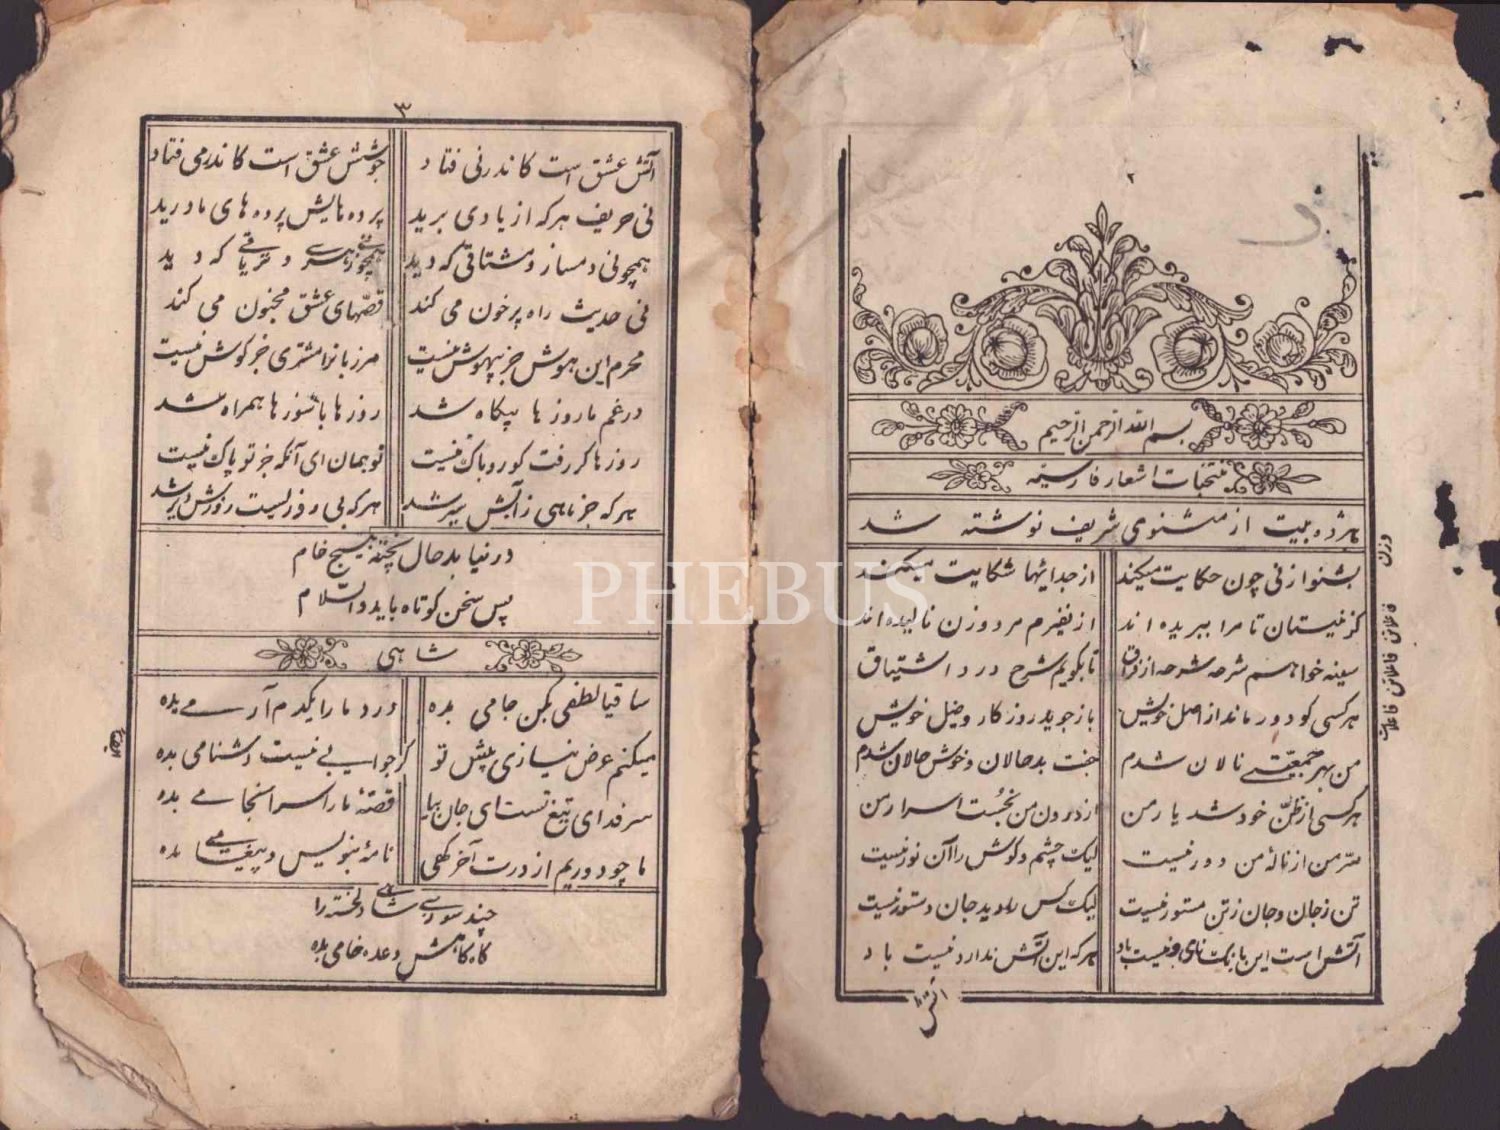 ۲
بسم الله الرحمن الرحیم
منتخبات اشعار فارسیّه
هژده بیت از مثنوی شریف نوشته شد
بشنو از نی چون حکایت میکند از جدائیها شکایت میکند
کز نیستان تا مرا ببریده اند از نفیرم مرد و زن نالیده اند
سینه خواهم شرحه شرحه از فراق تا بگویم شرح درد اشتیاق
هر کسی کو دور ماند از اصل خویش باز جوید روزگار وصل خویش
من بهر جمعیّتی نالان شدم جفت بدحالان و خوش حالان شدم
هر کسی از ظنّ خود شد یار من از درون من نجُست اسرار من
سرّ من از نالهٔ من دور نیست لیک چشم و گوش را آن نور نیست
تن ز جان و جان ز تن مستور نیست لیک کس را دید جان دستور نیست
آتش است این بانگ نای و نیست باد هر که این آتش ندارد نیست باد
آتش
وزن
فاعلاتن فاعلاتن فاعلات
۳
آتش عشق است کاندر نی فتاد جوشش عشق است کاندر می فتاد
نی حریف هر که از یاری برید پرده هایش پرده های ما درید
همچو نی دمساز و مشتاقی که دید همچو نی زهری و تریاقی که دید
نی حدیث راه پر خون می کند قصّهای عشق مجنون می کند
محرم این هوش جز بیهوش نیست مر زبانرا مشتری جز گوش نیست
در غم ما روز ها بیگاه شد روز ها با سوز ها همراه شد
روز ها گر رفت گو رو باک نیست تو بمان ای آنکه جز تو پاک نیست
هر که جز ماهی ز آبش سیر شد هر که بی روزیست روزش دیر شد
در نیابد حال پخته هیچ خام
پس سخن کوتاه باید والسّلام
شاهی
ساقیا لطفی بکن جامی بده درد ما را یکدم آرامی بده
میکنم عرض نیازی پیش تو گر جوابی نیست دشنامی بده
سر فدای تیغ تست ای جان بیا قصّهٔ ما را سرانجامی بده
ما چو دوریم از درت آخر گهی نامهٔ بنویس و پیغامی بده
چند سوزی شاهی دلخسته را
گاه گاهش وعده خامی بده
PHEBUS